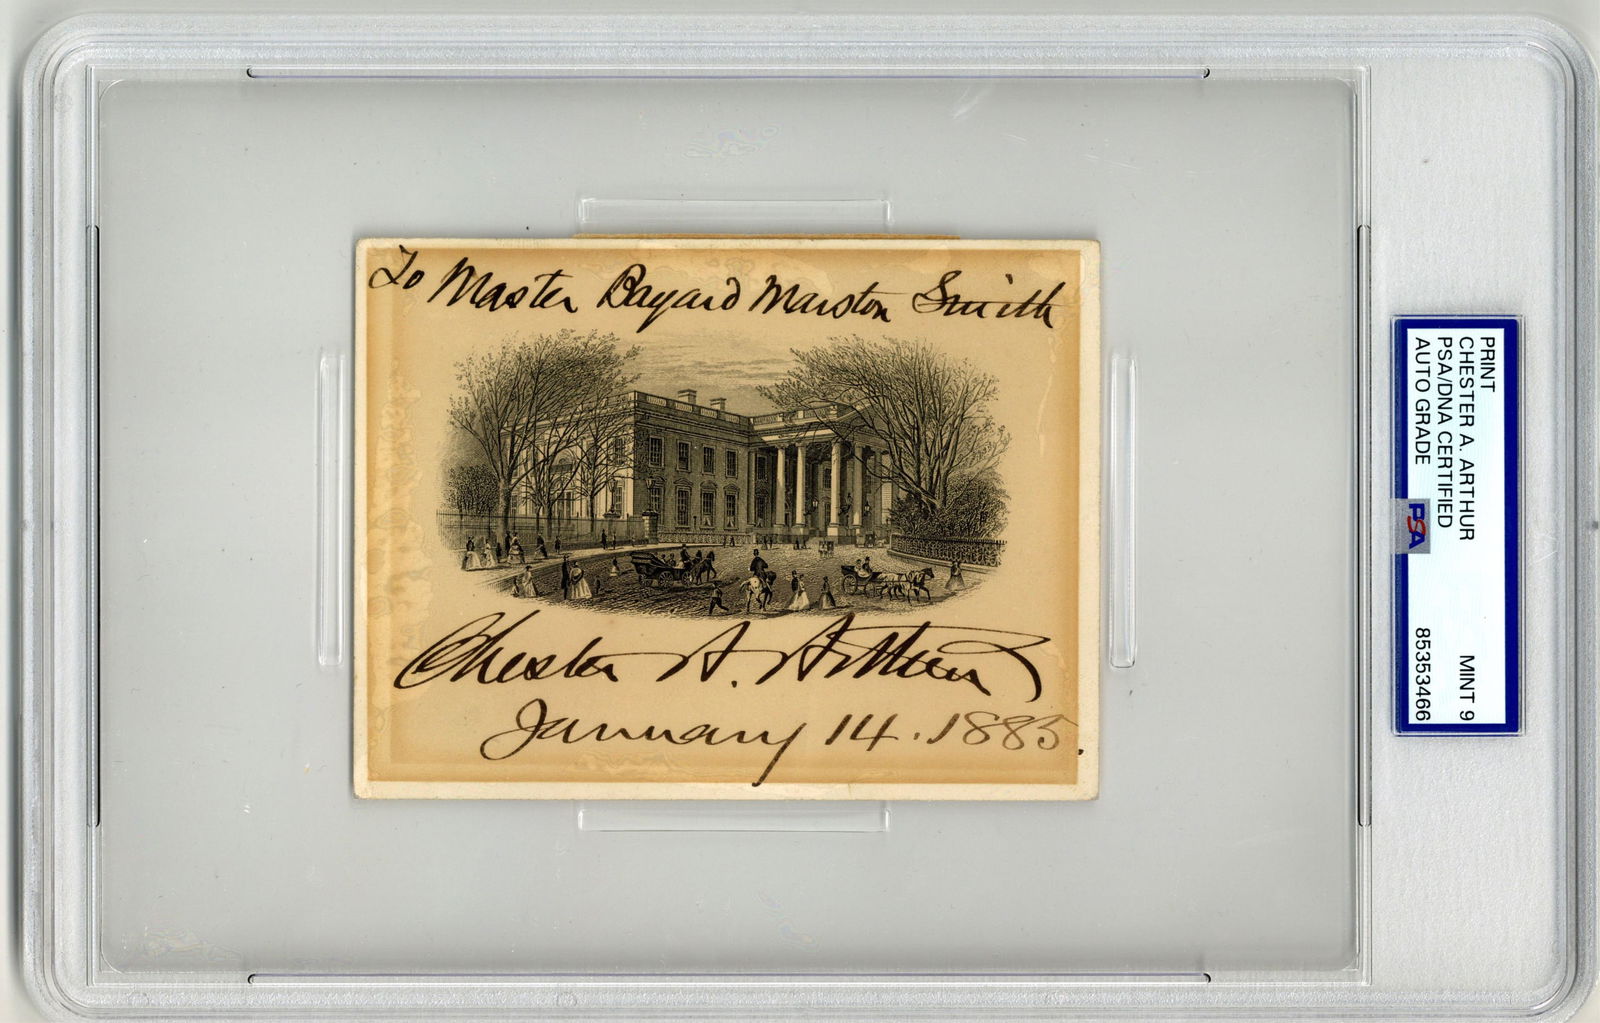 To Master Bayard Marston Smith
Chester A. Arthur
January 14. 1885.
PRINT
CHESTER A. ARTHUR
PSA/DNA CERTIFIED
AUTO GRADE MINT 9
85353466
PSA